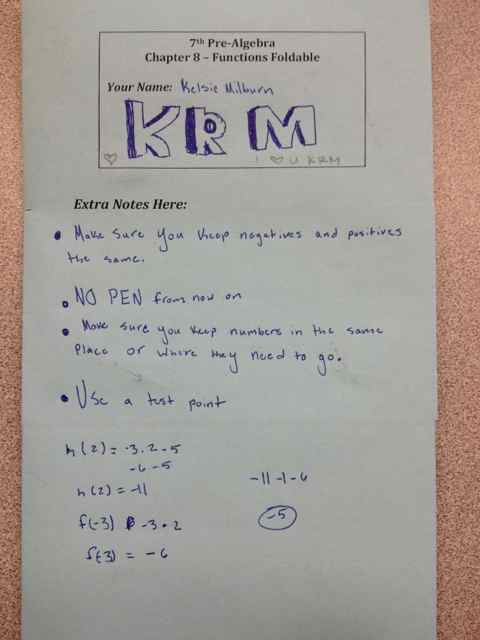 7th Pre-Algebra
Chapter 8 – Functions Foldable
Your Name: Kelsie Milburn
KRM
I ♡ U KRM
Extra Notes Here:
• Make sure you keep negatives and positives
the same.
• NO PEN from now on
• Make sure you keep numbers in the same
place or where they need to go.
• Use a test point
h(2) = -3 · 2 - 5
-6 - 5
h(2) = -11
-11 - 1 - 6
f(-3) -3 · 2
-5
f(-3) = -6